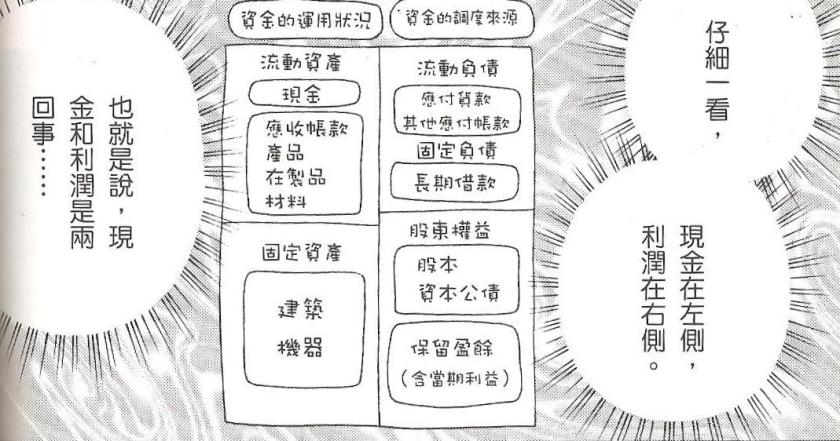 仔細一看，
現金在左側，
利潤在右側。
資金的運用狀況
資金的調度來源
流動資產
現金
應收帳款
產品
在製品
材料
固定資產
建築
機器
流動負債
應付貨款
其他應付帳款
固定負債
長期借款
股東權益
股本
資本公債
保留盈餘
（含當期利益）
也就是說，現
金和利潤是兩
回事……